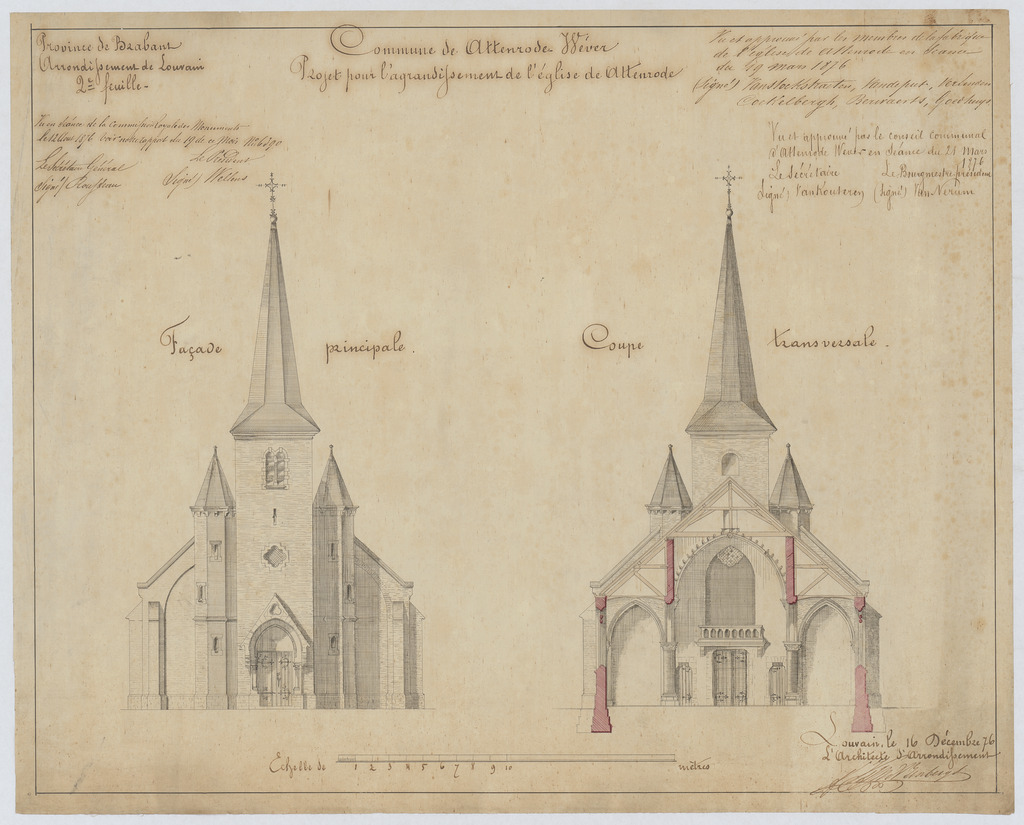 Province de Brabant
Arrondissement de Louvain
2me feuille-
Commune de Attenrode-Wéver
Projet pour l'agrandissement de l'église de Attenrode
Vu et approuvé par les membres de la fabrique
de l'église de Attenrode en séance
du 19 mars 1876
(Signé) Vanstockstraeten, Vandeput,
Coekelbergh, Beuvaerts,
Vu en séance de la commission royale des Monuments
le 12 Aout 1876 voir notre rapport du 19 de ce Mois No 6390
Le Secrétaire Général
Le Président
Signé) Rousseau
Signé) Wellens
Vu et approuvé par le conseil communal
d'Attenrode Wever en séance du 21 Mars
1876
Le Secrétaire
Le Bourgmestre président
(Signé) Vanhouteren
(Signé) Van Nerum
Façade principale.
Coupe transversale.
Echelle de 1 2 3 4 5 6 7 8 9 10 mètres
Louvain, le 16 Décembre 76
L'Architecte d'Arrondissement